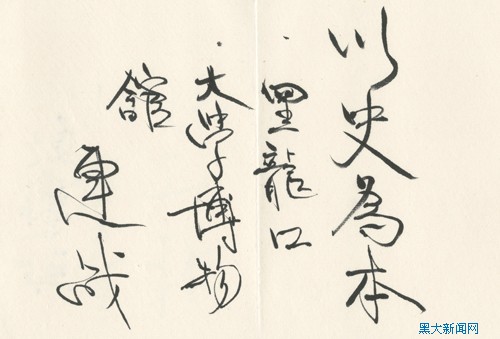 以史為本
黑龍江
大學博物
館
連战
黑大新闻网